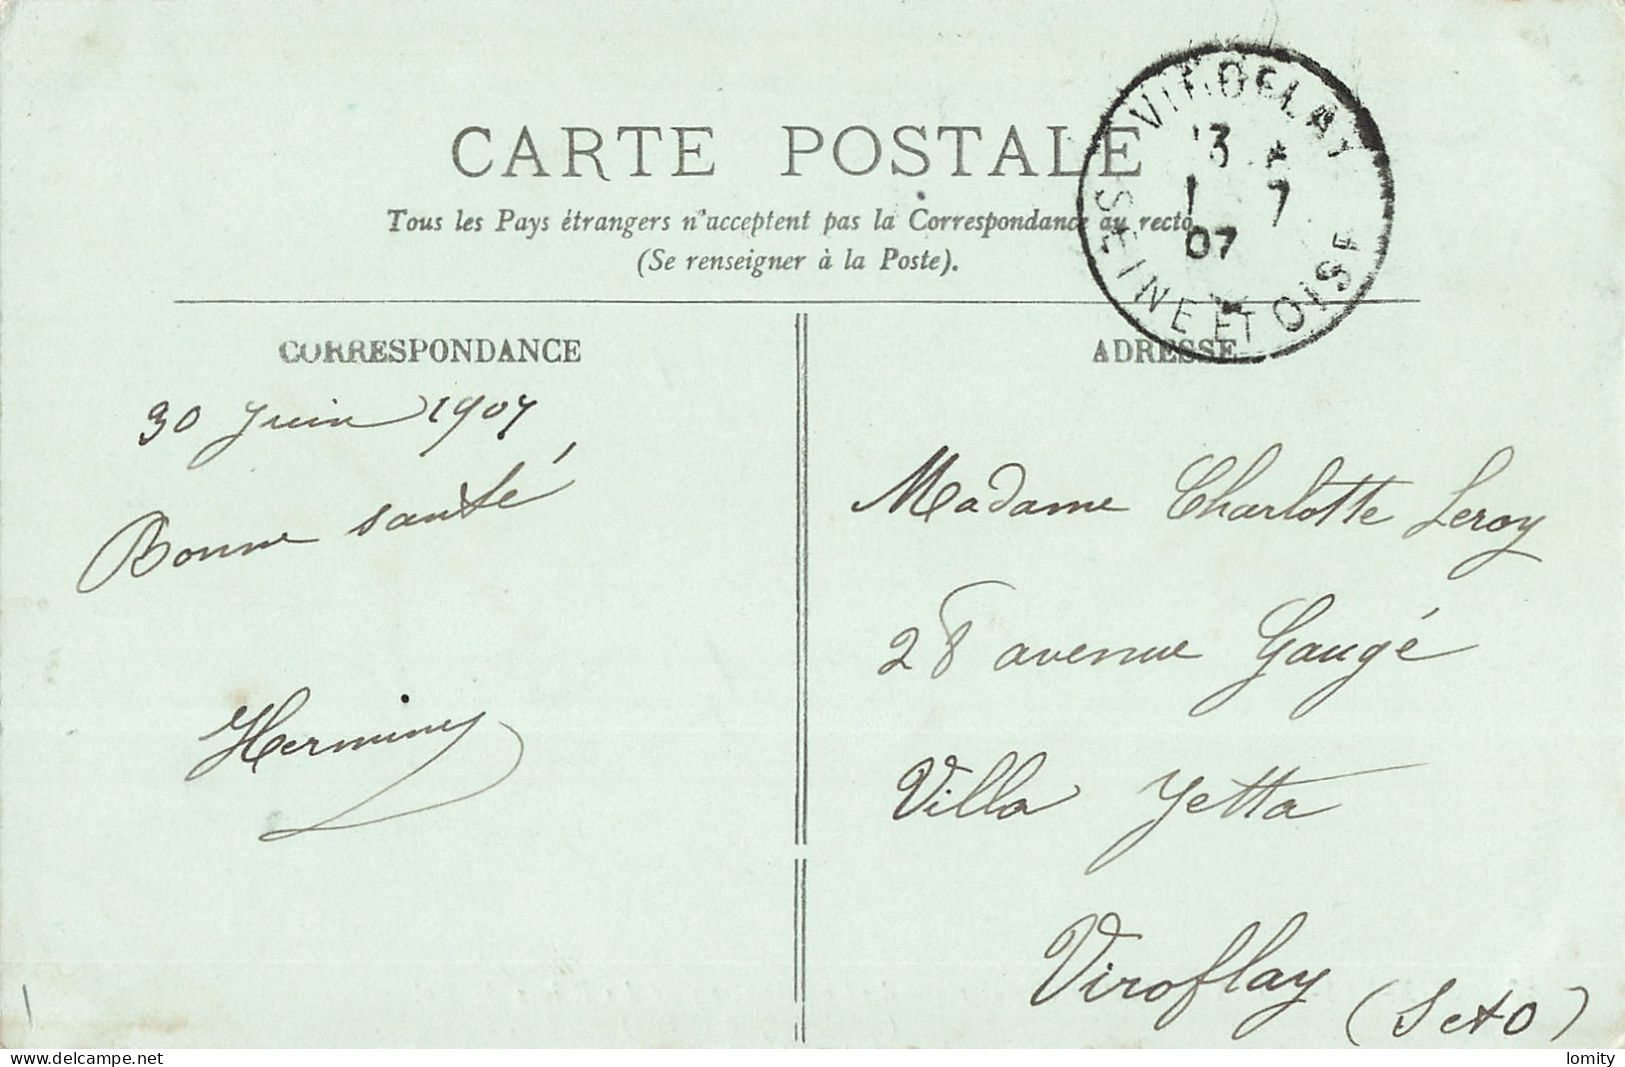 CARTE POSTALE
Tous les Pays étrangers n'acceptent pas la Correspondance au recto
(Se renseigner à la Poste).
VIROFLAY
13
1 7
07
SEINE ET OISE
CORRESPONDANCE
30 Juin 1907
Bonne santé
Hermine
ADRESSE
Madame Charlotte Leroy
28 avenue Gaugé
Villa Yetta
Viroflay (S et O)
delcampe.net
lomity